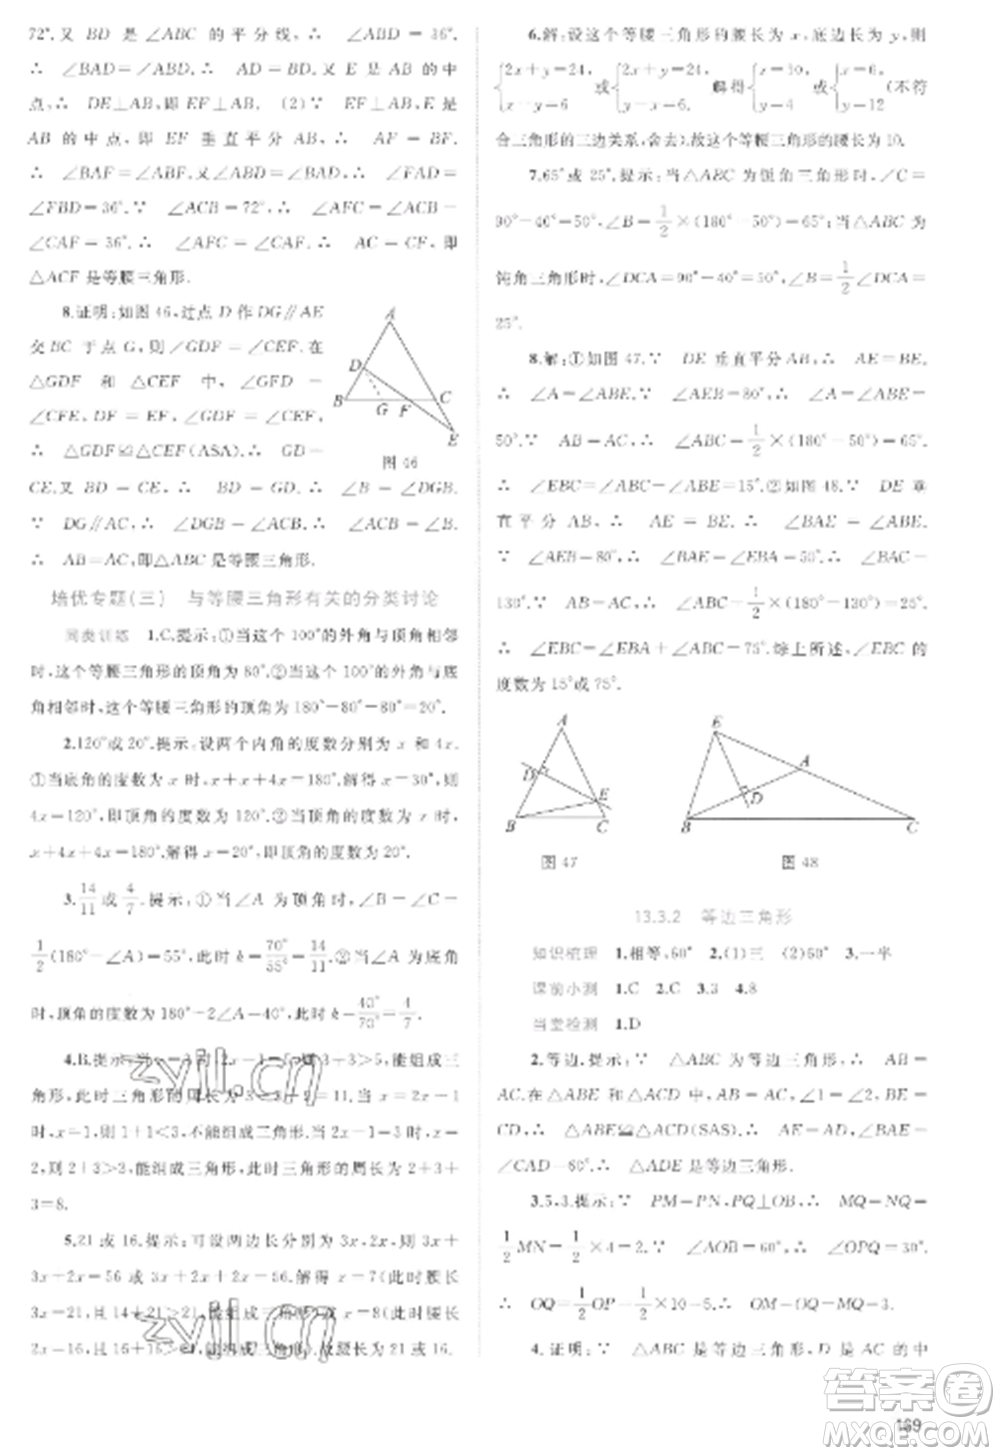 72°.又 BD 是 ∠ABC 的平分线,∴ ∠ABD=36°.
∴ ∠BAD=∠ABD.又∵ E 是 AB 的中
点,∴ DE⊥AB,即 EF⊥AB. (2)∵ EF⊥AB,E 是
AB 的中点,即 EF 垂直平分 AB,∴ AF=BF.
∴ ∠BAF=∠ABF.又∵ ∠ABD=∠BAD,∴
∠FBD=36°.∵ ∠ACB=72°,∴ ∠AFC=∠ACB-
∠CAF=36°.∴ ∠AFC=∠CAF.∴ AC=CF,即
△ACF 是等腰三角形.
8.证明:如图 46,过点 D 作 DG∥AE
交 BC 于点 G,则∠GDF=∠CEF.在
△GDF 和 △CEF 中,∠GFD=
∠CFE,DF=EF,∠GDF=∠CEF,
∴ △GDF≌△CEF(ASA).∴ GD=
CE.又 BD=CE,∴ BD=GD.∴ ∠B=∠DGB.
∵ DG∥AC,∴ ∠DGB=∠ACB.∴ ∠ACB=∠B.
∴ AB=AC,即△ABC 是等腰三角形.
A
D
B
G
F
C
E
图 46
培优专题(三) 与等腰三角形有关的分类讨论
同类训练 1.C.提示:①当这个 100°的外角与顶角相邻
时,这个等腰三角形的顶角为 80°.②当这个 100°的外角与底
角相邻时,这个等腰三角形的顶角为 180°-80°-80°=20°.
2.120°或 20°.提示:设两个内角的度数分别为 x 和 4x.
①当底角的度数为 x 时,x+x+4x=180°.解得 x=30°,则
4x=120°,即顶角的度数为 120°.②当顶角的度数为 x 时,
x+4x+4x=180°.解得 x=20°,即顶角的度数为 20°.
3.14/11或4/7.提示:①当∠A 为顶角时,∠B=∠C=
1/2(180°-∠A)=55°,此时 k=70°/55°=14/11;②当∠A 为底角
时,顶角的度数为 180°-2∠A=40°,此时 k=40°/70°=4/7.
4.B.提示:①当 2x-1=3+3>5,能组成三
角形,此时三角形的周长为 3+3+5=11.②当 2x-1=
x,则 x=1,1+1<3,不能组成三角形.③当 x+1=3,则 x=
2,则 2+3>3,能组成三角形,此时三角形的周长为 2+3+
3=8.
5.21 或 16.提示:可设两边长分别为 3x,2x,则 3x+
3x+2x=56 或 3x+2x+2x=56.解得 x=7(此时腰长
3x=21,且 14+21>21,能组成三角形)或 x=8(此时腰长
2x=16,且 16+16>24,能组成三角形).故腰长为 21 或 16.
6.解:设这个等腰三角形的腰长为 x,底边长为 y,则
{2x+y=24, x-y=6 或 {2x+y=24, y-x=6. 解得 {x=10, y=4 或 {x=6, y=12 (不符
合三角形的三边关系,舍去).故这个等腰三角形的腰长为 10.
7.65°或 25°.提示:当△ABC 为锐角三角形时,∠C=
90°-40°=50°,∠B=1/2×(180°-50°)=65°;当△ABC 为
钝角三角形时,∠DCA=90°-40°=50°,∠B=1/2∠DCA=
25°.
8.解:①如图 47.∵ DE 垂直平分 AB,∴ AE=BE.
∴ ∠A=∠ABE.∵ ∠AEB=80°,∴ ∠A=∠ABE=
50°.∵ AB=AC,∴ ∠ABC=1/2×(180°-50°)=65°.
∴ ∠EBC=∠ABC-∠ABE=15°.②如图 48.∵ DE 垂
直平分 AB,∴ AE=BE.∴ ∠BAE=∠EBA.
∵ ∠AEB=80°,∴ ∠BAE=∠EBA=50°.∴ ∠BAC=
130°.∵ AB=AC,∴ ∠ABC=1/2×(180°-130°)=25°.
∴ ∠EBC=∠EBA+∠ABC=75°.综上所述,∠EBC 的
度数为 15°或 75°.
A
D
E
B
C
图 47
E
A
D
B
C
图 48
13.3.2 等边三角形
知识梳理 1.相等,60° 2.(1)三 (2)60° 3.一半
课前小测 1.C 2.C 3.3 4.8
当堂检测 1.D
2.等边.提示:∵ △ABC 为等边三角形,∴ AB=
AC.在△ABE 和△ACD 中,∵ AB=AC,∠1=∠2,BE=
CD,∴ △ABE≌△ACD(SAS).∴ AE=AD,∠BAE=
∠CAD=60°.∴ △ADE 是等边三角形.
3.5,3.提示:∵ PM=PN,PQ⊥OB,∴ MQ=NQ=
1/2MN=1/2×4=2.∵ ∠AOB=60°,∴ ∠OPQ=30°.
∴ OQ=1/2OP=1/2×10=5.∴ OM=OQ-MQ=3.
4.证明:∵ △ABC 是等边三角形,D 是 AC 的中
zyjl.cn
zyjl.cn
答案圈
MXQE.COM
169